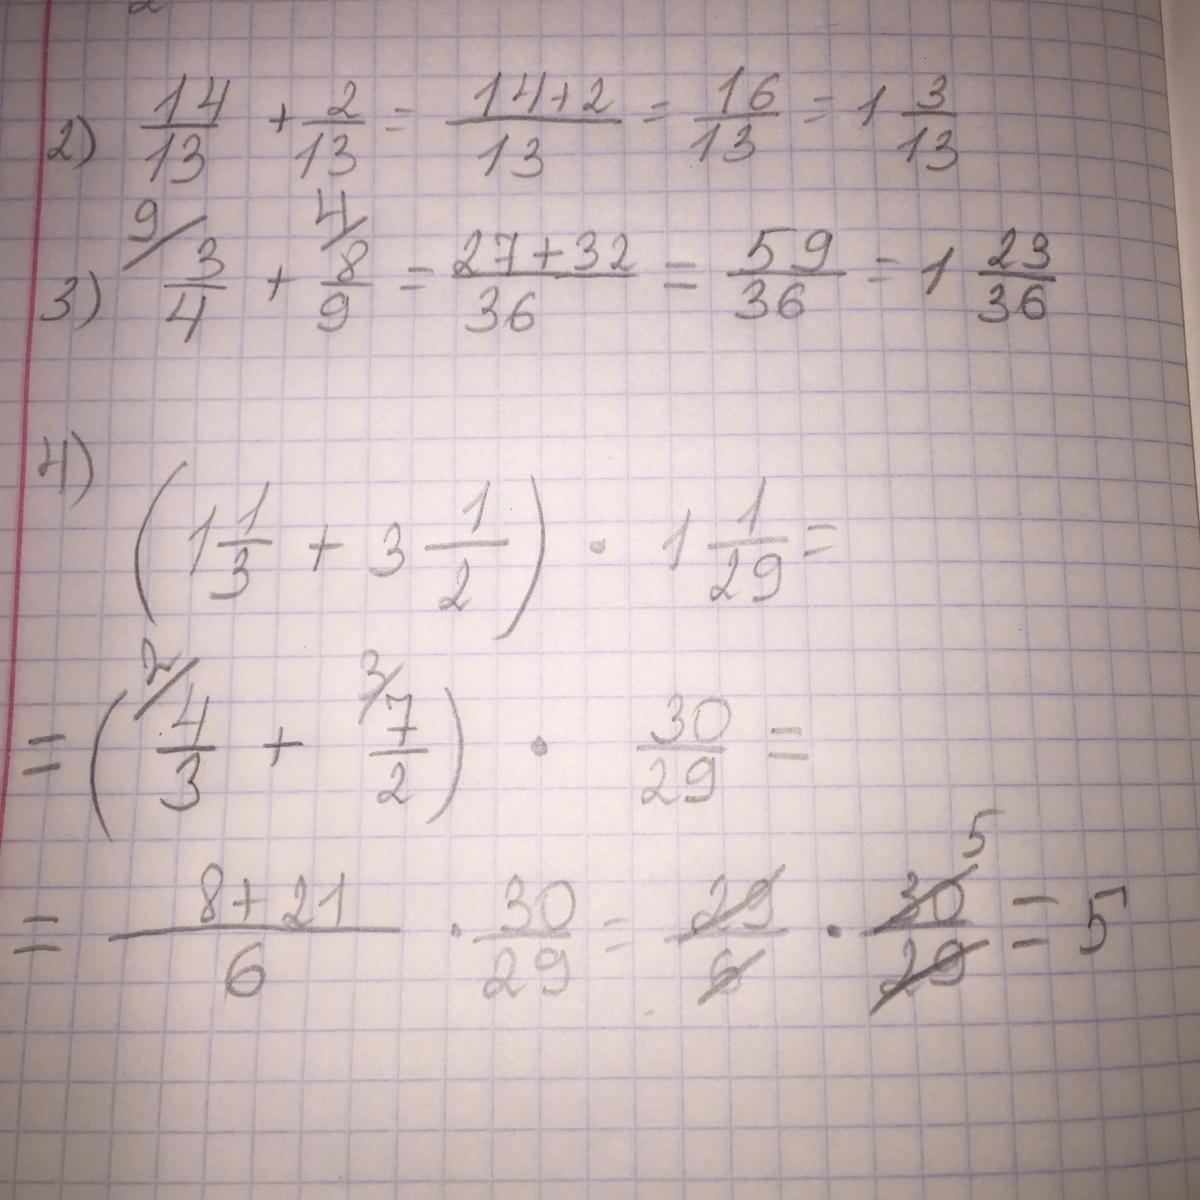 2) 14/13 + 2/13 = 14+2/13 = 16/13 = 1 3/13
3) 9/ 3/4 + 4/ 8/9 = 27+32/36 = 59/36 = 1 23/36
4)
(1 1/3 + 3 1/2) · 1 1/29 =
= (2/ 4/3 + 3/ 7/2) · 30/29 =
= 8+21/6 · 30/29 = 29/6 · 30/29 5 = 5